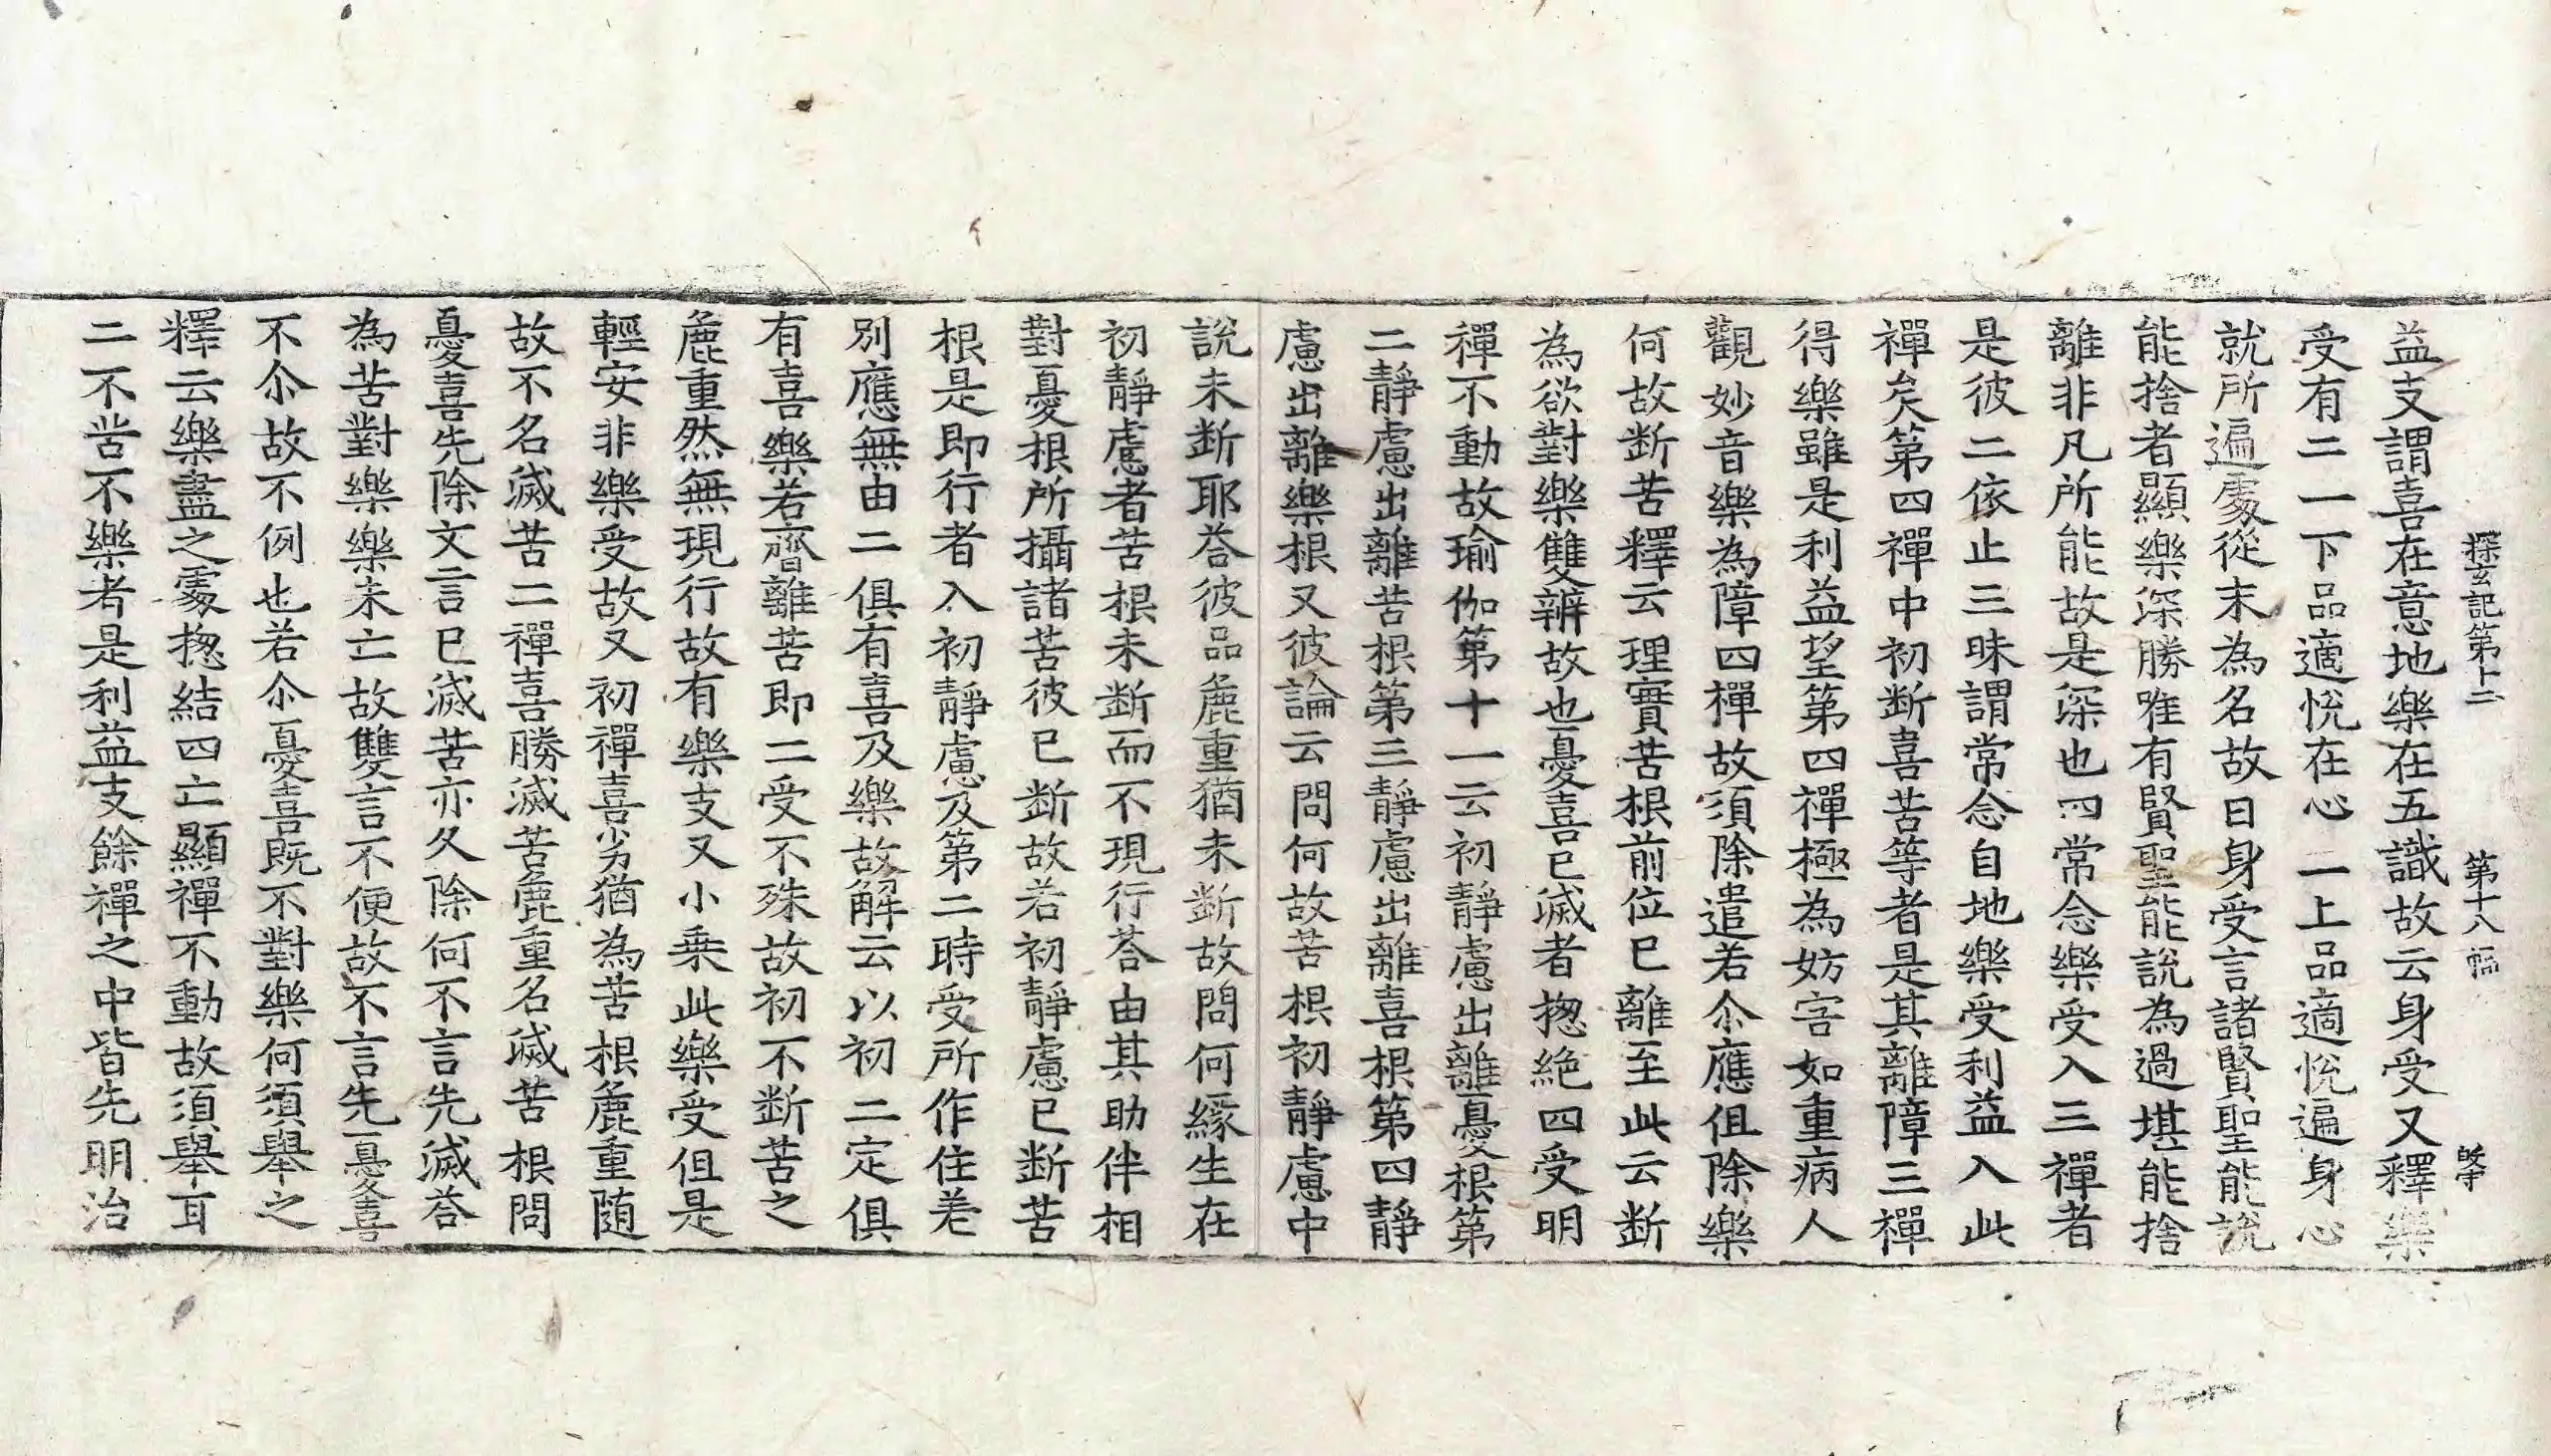 探玄記第十二 第十八幅
益支謂喜在意地樂在五識故云身受又釋樂
受有二一下品適悅在心二上品適悅遍身心
就所遍處從末為名故曰身受言諸賢聖能說
能捨者顯樂深勝唯有賢聖能說為過堪能捨
離非凡所能故是深也四常念樂受入三禪者
是彼二依止三昧謂常念自地樂受利益入此
禪矣第四禪中初断喜苦等者是其離障三禪
得樂雖是利益望第四禪極為妨害如重病人
觀妙音樂為障四禪故須除遣若尒應但除樂
何故断苦釋云理實苦根前位已離至此云断
為欲對樂雙辨故也憂喜已滅者揔絕四受明
禪不動故瑜伽第十一云初靜慮出離憂根第
二靜慮出離苦根第三靜慮出離喜根第四靜
慮出離樂根又彼論云問何故苦根初靜慮中
說未断耶荅彼品麁重猶未断故問何緣生在
初靜慮者苦根未断而不現行荅由其助伴相
對憂根所攝諸苦彼已断故若初靜慮已断苦
根是即行者入初靜慮及第二時受所作住差
別應無由二俱有喜及樂故解云以初二定俱
有喜樂若齊離苦即二受不殊故初不断苦之
麁重然無現行故有樂支又小乗此樂受但是
輕安非樂受故又初禪喜劣猶為苦根麁重随
故不名滅苦二禪喜勝滅苦麁重名滅苦根問
憂喜先除文言已滅苦亦久除何不言先滅荅
為苦對樂樂未亡故雙言不便故不言先憂喜
不尒故不例也若尒憂喜既不對樂何須舉之
釋云樂盡之處揔結四亡顯禪不動故須舉耳
二不苦不樂者是利益支餘禪之中皆先明治